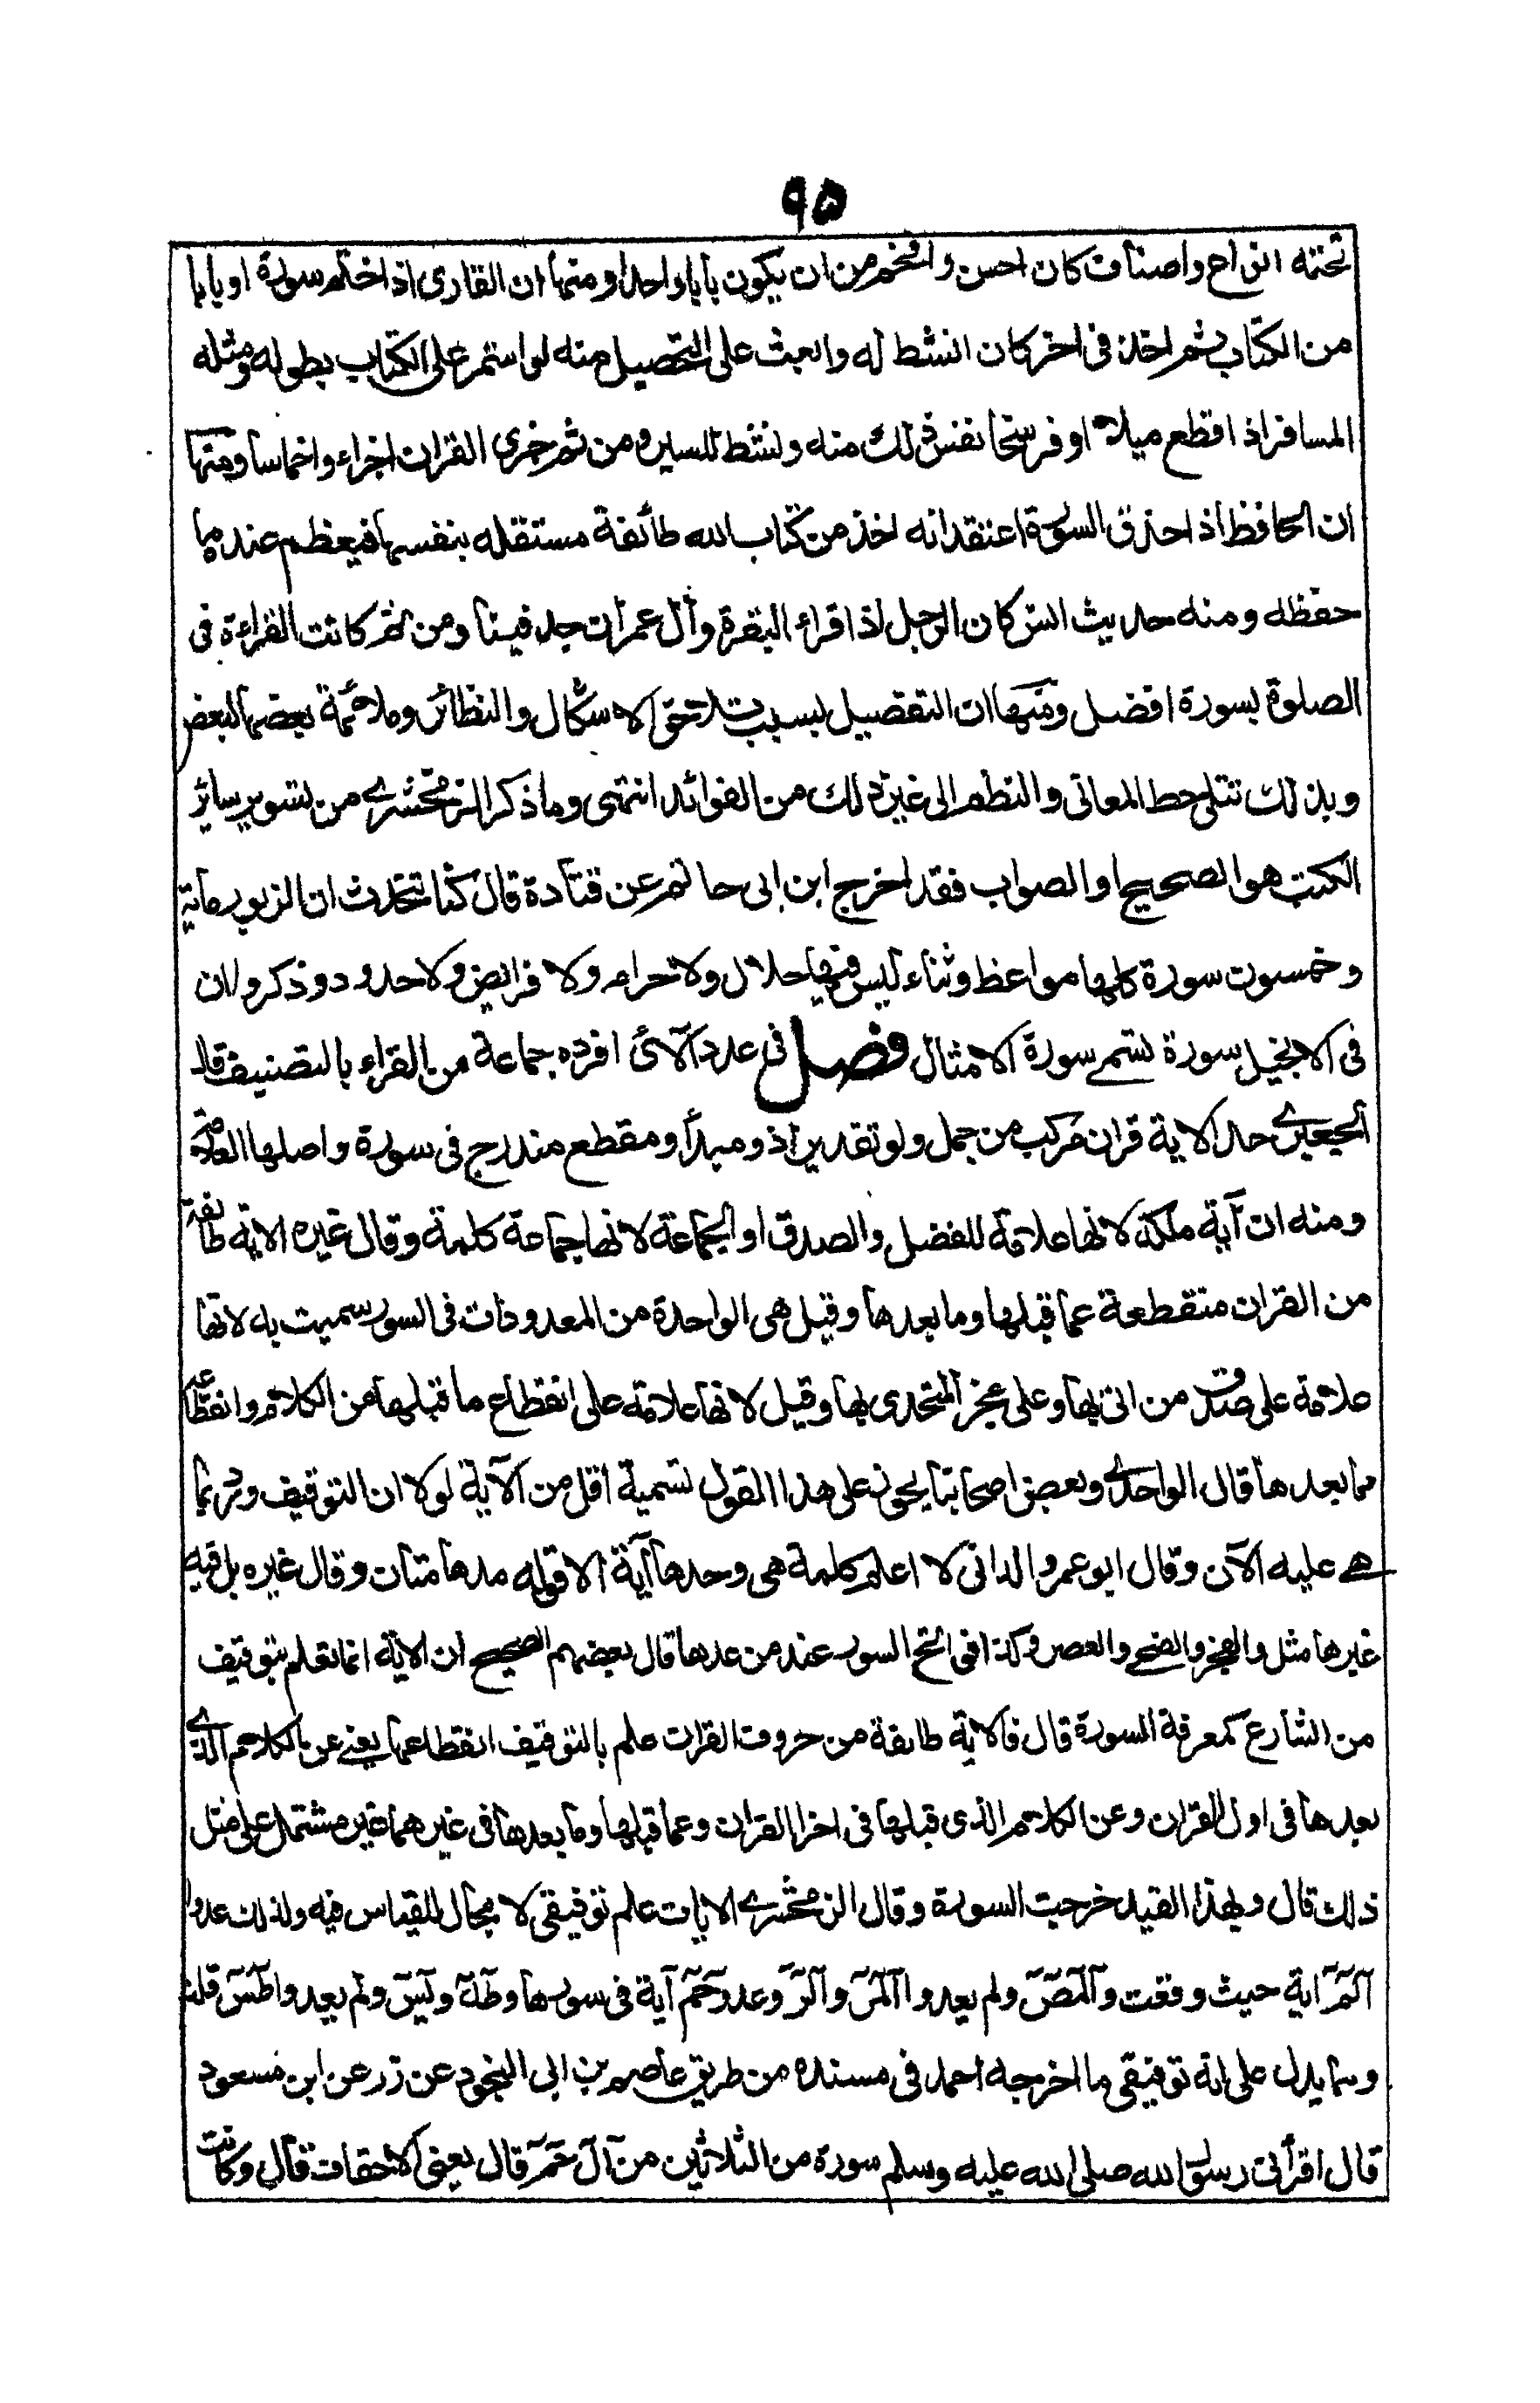 ٩٥
تحته انواع واصناف كان احسن وافخم من ان يكون بابا واحدا ومنها ان القارى اذا ختم سورة او بابا
من الكتاب ثم اخذ فى اخر كان انشط له وابعث على التحصيل منه لو استمر على الكتاب بطوله ومثله
المسافر اذا قطع ميلا او فرسخا نفس ذلك منه ونشط للسير ومن ثم جزى القران اجزاء واخماسا ومنها
ان الحافظ اذا حذق السورة اعتقد انه اخذ من كتاب الله طائفة مستقله بنفسها فيعظم عنده ما
حفظه ومنه حديث انس كان الرجل اذا قراء البقرة وآل عمران جد فينا ومن ثم كانت القراءة فى
الصلوة بسورة افضل ومنها ان التفصيل بسبب تلاحق الاشكال والنظائر وملائمة بعضها لبعض
وبذلك تتلاحظ المعانى والنظم الى غير ذلك من الفوائد انتهى وما ذكر الزمخشرے من تسوير سائر
الكتب هو الصحيح او الصواب فقد اخرج ابن ابى حاتم عن قتادة قال كنا نتحدث ان الزبور مائة
وخمسون سورة كلها مواعظ وثناء ليس فيها حلال ولا حرام ولا فرايض ولا حدود وذكروا ان
فى الانجيل سورة تسمے سورة الامثال فصل فى عدد الآئ افرده جماعة من القراء بالتصنيف قال
الجعبرے حد الاية قران مركب من جمل ولو تقديرا ذو مبدأ ومقطع مندرج فى سورة واصلها العلامة
ومنه ان آية ملكه لانها علامة للفضل والصدق او الجماعة لانها جماعة كلمة وقال غيره الاية طائفة
من القران منقطعة عما قبلها وما بعدها وقيل هى الواحدة من المعدودات فى السور سميت به لانها
علامة على صدق من اتى بها وعلى عجز المتحدى بها وقيل لانها علامة على انقطاع ما قبلها من الكلام وانقطاعه
مما بعدها قال الواحدے وبعض اصحابنا يجوز على هذا القول تسمية اقل من الآية لولا ان التوقيف ورد بما
هے عليه الآن وقال ابو عمرو الدانى لا اعلم كلمة هى وحدها آية الا قوله مدهامتان وقال غيره بل فيه
غيرها مثل والفجر والضحے والعصر وكذا فواتح السور عند من عدها قال بعضهم الصحيح ان الاية انما تعلم بتوقيف
من الشارع كمعرفة السورة قال فالاية طايفة من حروف القران علم بالتوقيف انقطاعها يعنے عن الكلام الذے
بعدها فى اول القران وعن الكلام الذى قبلها فى اخر القران وعما قبلها وما بعدها فى غيرهما غير مشتمل على مثل
ذلك قال وبهذا القيد خرجت السورة وقال الزمخشرے الايات علم توقيفى لا مجال للقياس فيه ولذلك عدوا
آلمٓ اية حيث وقعت وآلمٓصٓ ولم يعدوا آلمٓرٓ وآلرٓ وعدوا حٓمٓ آية فى سورها وطٰهٰ ويٰسٓ ولم يعدوا طٰسٓ قلت
ومما يدل على انه توقيفى ما اخرجه احمد فى مسنده من طريق عاصم بن ابى النجود عن زر عن ابن مسعود
قال اقرأنى رسول الله صلى الله عليه وسلم سورة من الثلاثين من آل حٓمٓ قال يعنى الاحقاف قال وكانت